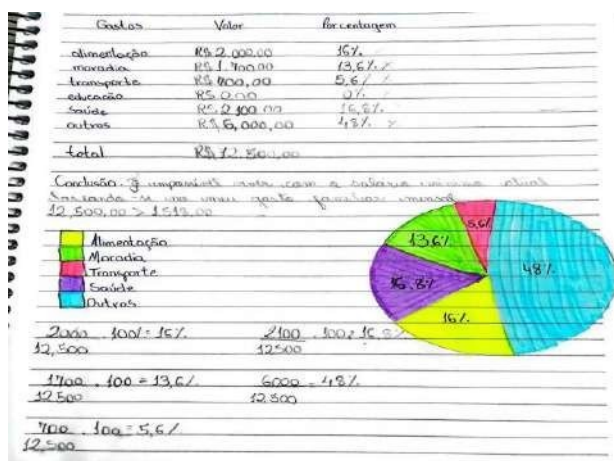 Gastos Valor Porcentagem
alimentação R$ 2.000,00 16%
moradia R$ 1.700,00 13,6%
transporte R$ 700,00 5,6%
educação R$ 0,00 0%
Saúde R$ 2.100,00 16,8%
outros R$ 6,000,00 48%
total R$ 12.500,00
Conclusão: É impossível viver com o salário mínimo atual
baseando-se no meu gasto familiar mensal
12,500,00 > 1518,00
Alimentação
Moradia
Transporte
Saúde
Outros
5,6%
13,6%
48%
16,8%
16%
2000 . 100% = 16% 2100 . 100 = 16,8%
12,500 12500
1700 . 100 = 13,6% 6000 = 48%
12.500 12.500
700 . 100 = 5,6%
12,500